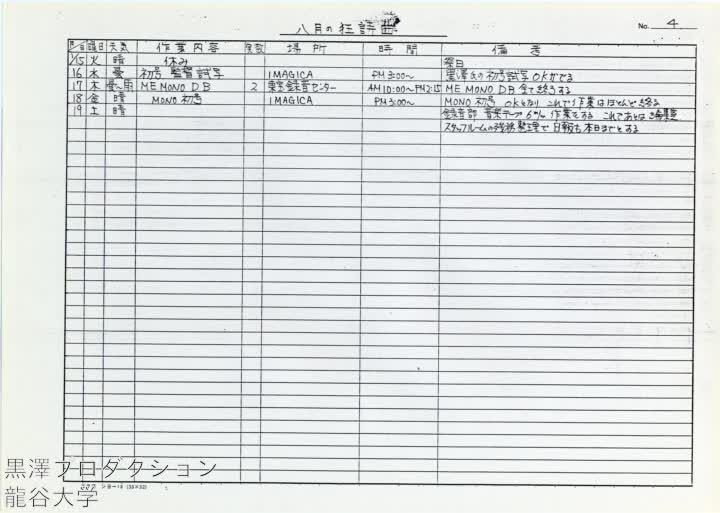 八月の狂詩曲
No. 4
月/日 曜日 天気 作業内容 実数 場所 時間 備考
/15 火 晴 休み 祭日
16 水 曇 初号 監督試写 IMAGICA PM3:00〜 黒澤氏の初号試写 OKがでる
17 木 曇〜雨 ME MONO DB 2 東京録音センター AM10:00〜PM2:15 ME MONO DB 全て終了する
18 金 晴 MONO 初号 IMAGICA PM3:00〜 MONO 初号 OKとなり これで作業はほとんど終る
19 土 晴 録音部 音楽テープ 6mm 作業をする これであとは
スタッフルームの残務整理で 日報も本日までとする
黒澤プロダクション
龍谷大学